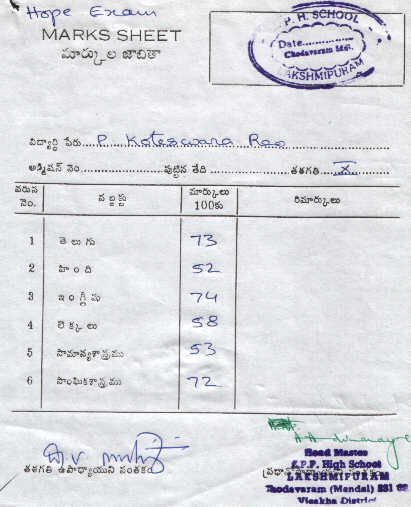 Hope Exam
MARKS SHEET
మార్కుల జాబితా
P. H. SCHOOL
Date
Chodavaram Mdl.
LAKSHMIPURAM
విద్యార్థి పేరు P. Koteswara Rao
అడ్మిషన్ నెం. పుట్టిన తేది తరగతి X
వరుస నెం. సబ్జెక్టు మార్కులు 100కు రిమార్కులు
1 తెలుగు 73
2 హింది 52
3 ఇంగ్లీషు 74
4 లెక్కలు 58
5 సామాన్యశాస్త్రము 53
6 సాంఘికశాస్త్రము 72
తరగతి ఉపాధ్యాయుని సంతకం
Head Master
Z.P.P. High School
LAKSHMIPURAM
Chodavaram (Mandal)
Visakha District